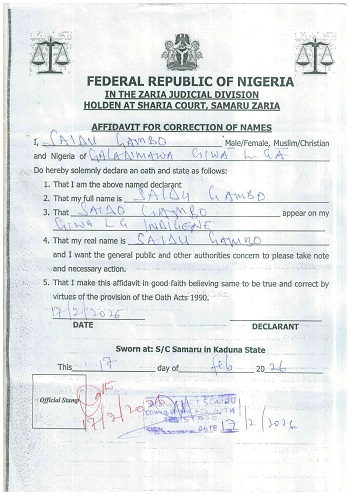 FEDERAL REPUBLIC OF NIGERIA
IN THE ZARIA JUDICIAL DIVISION
HOLDEN AT SHARIA COURT, SAMARU ZARIA
AFFIDAVIT FOR CORRECTION OF NAMES
I, SAIDU GAMBO Male/Female, Muslim/Christian
and Nigeria of GALADIMAWA GIWA L GA
Do hereby solemnly declare an oath and state as follows:
1. That I am the above named declarant
2. That my full name is SAIDU GAMBO
3. That SAIDO GAMBO appear on my
GIWA LG INDIGENE
4. That my real name is SAIDU GAMBO
and I want the general public and other authorities concern to please take note
and necessary action.
5. That I make this affidavit in good faith believing same to be true and correct by
virtues of the provision of the Oath Acts 1990.
17/2/2026
DATE DECLARANT
Sworn at: S/C Samaru in Kaduna State
This 17 day of feb 2026
Official Stamp
17/2/2026
17/2/2026